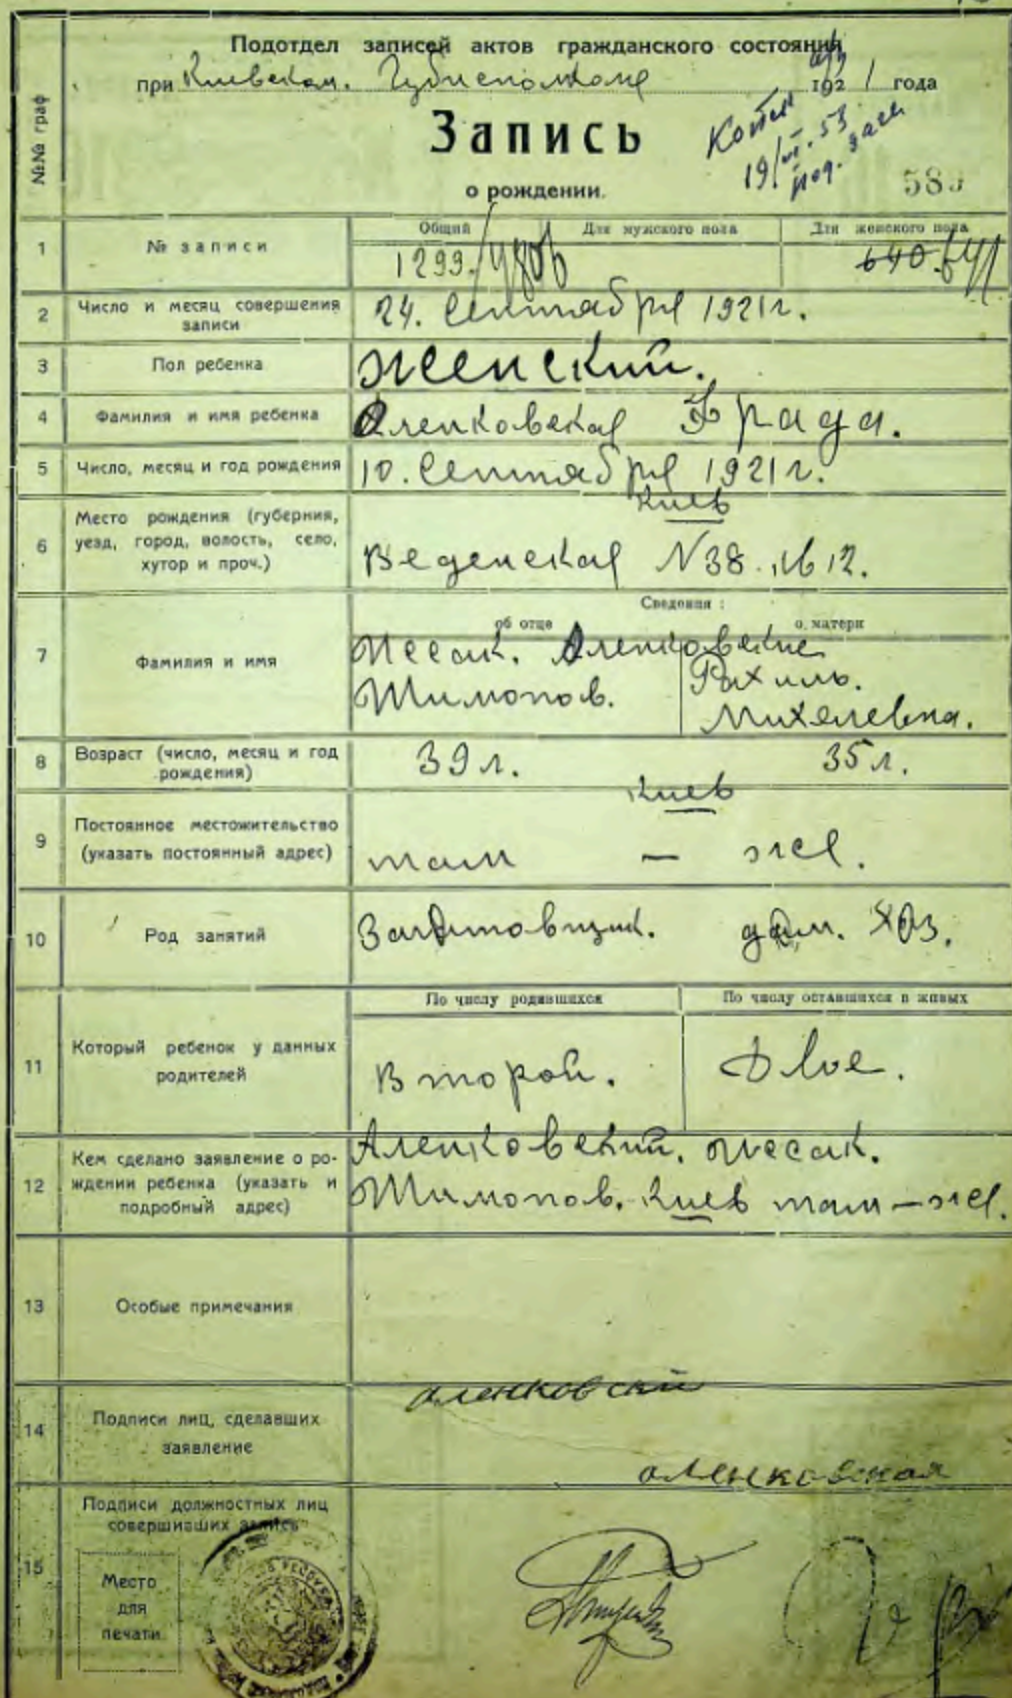 Подотдел записей актов гражданского состояния
при Киевском. Губисполкоме 1921 года
Запись
о рождении.
Копия
19/VI.53
№№ граф
1 № записи
Общий Для мужского пола Для женского пола
1299. 640. 641
2 Число и месяц совершения записи
24. Сентября 1921 г.
3 Пол ребенка
Женский.
4 Фамилия и имя ребенка
Аленковская Фрада.
5 Число, месяц и год рождения
10. Сентября 1921 г.
6 Место рождения (губерния,
уезд, город, волость, село,
хутор и проч.)
Киев
Веденская N 38. 12.
Сведения:
об отце о матери
7 Фамилия и имя
Исеак. Аленковские
Шимонов. Рахиль.
Михелевна.
8 Возраст (число, месяц и год
рождения)
39 л. 35 л.
9 Постоянное местожительство
(указать постоянный адрес)
Киев
там — же.
10 Род занятий
Заготовщик. дом. хоз.
11 Который ребенок у данных
родителей
По числу родившихся По числу оставшихся в живых
Второй. Двое.
12 Кем сделано заявление о ро-
ждении ребенка (указать и
подробный адрес)
Аленковский. Исеак.
Шимонов. Киев там — же.
13 Особые примечания
14 Подписи лиц, сделавших
заявление
аленковский
аленковская
15 Подписи должностных лиц
совершивших запись
Место
для
печати